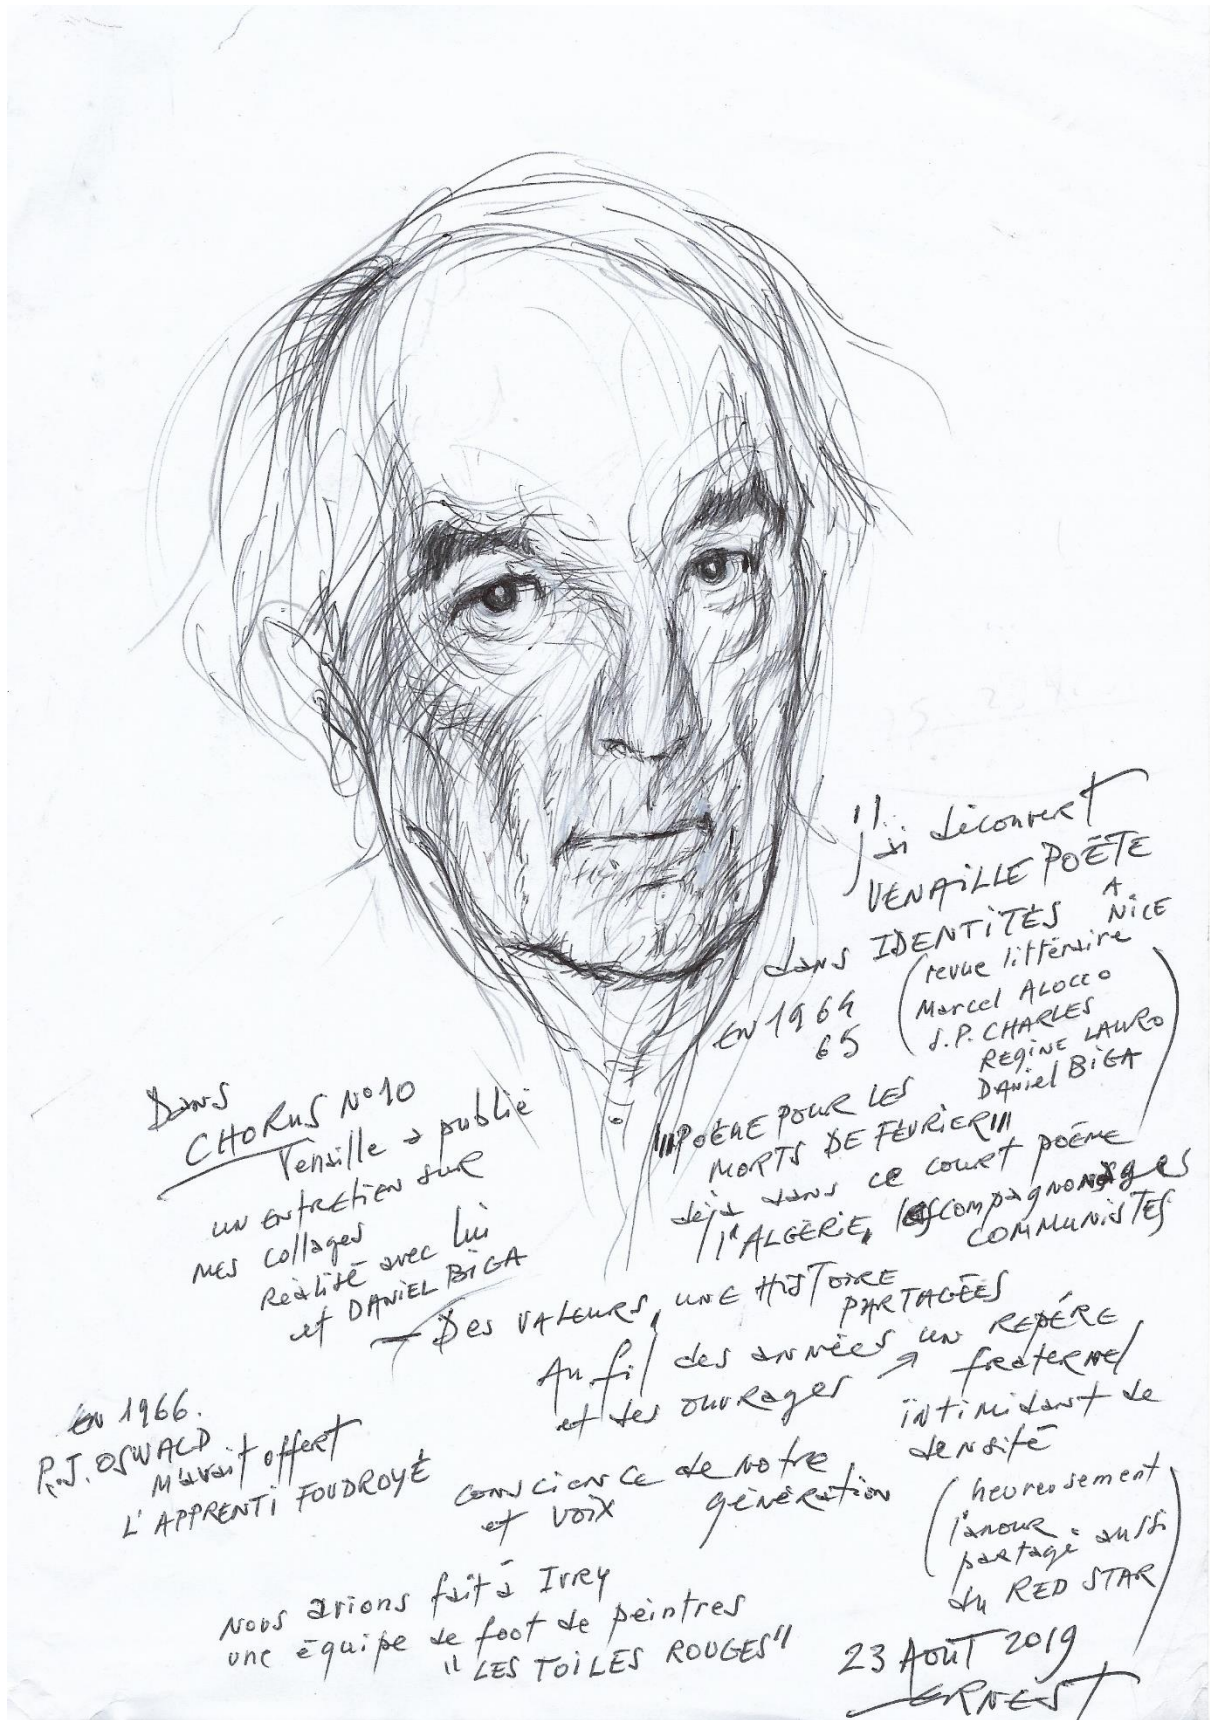 j'ai découvert
VENAILLE POËTE
dans IDENTITÉS A NICE
EN 1964
65
(revue littéraire
Marcel ALOCCO
J.P. CHARLES
REGINE LAURO
DANIEL BIGA)
"POÈME POUR LES
MORTS DE FÉVRIER"
déjà dans ce court poème
l'ALGÉRIE, les compagnonages
COMMUNISTES
Dans
CHORUS N°10
Venaille a publié
un entretien sur
mes collages
Réalité avec lui
et DANIEL BIGA
— Des VALEURS, UNE HISTOIRE
PARTAGÉES
Au fil des années un REPÈRE
et des ouvrages fraternel
intimidant de
densité
conscience de notre
et voix génération
(heureusement
l'amour
partagé aussi
du RED STAR)
en 1966.
P.J. OSWALD
m'avait offert
L'APPRENTI FOUDROYÉ
Nous avions fait à IVRY
une équipe de foot de peintres
"LES TOILES ROUGES"
23 AOÛT 2019
ERNEST